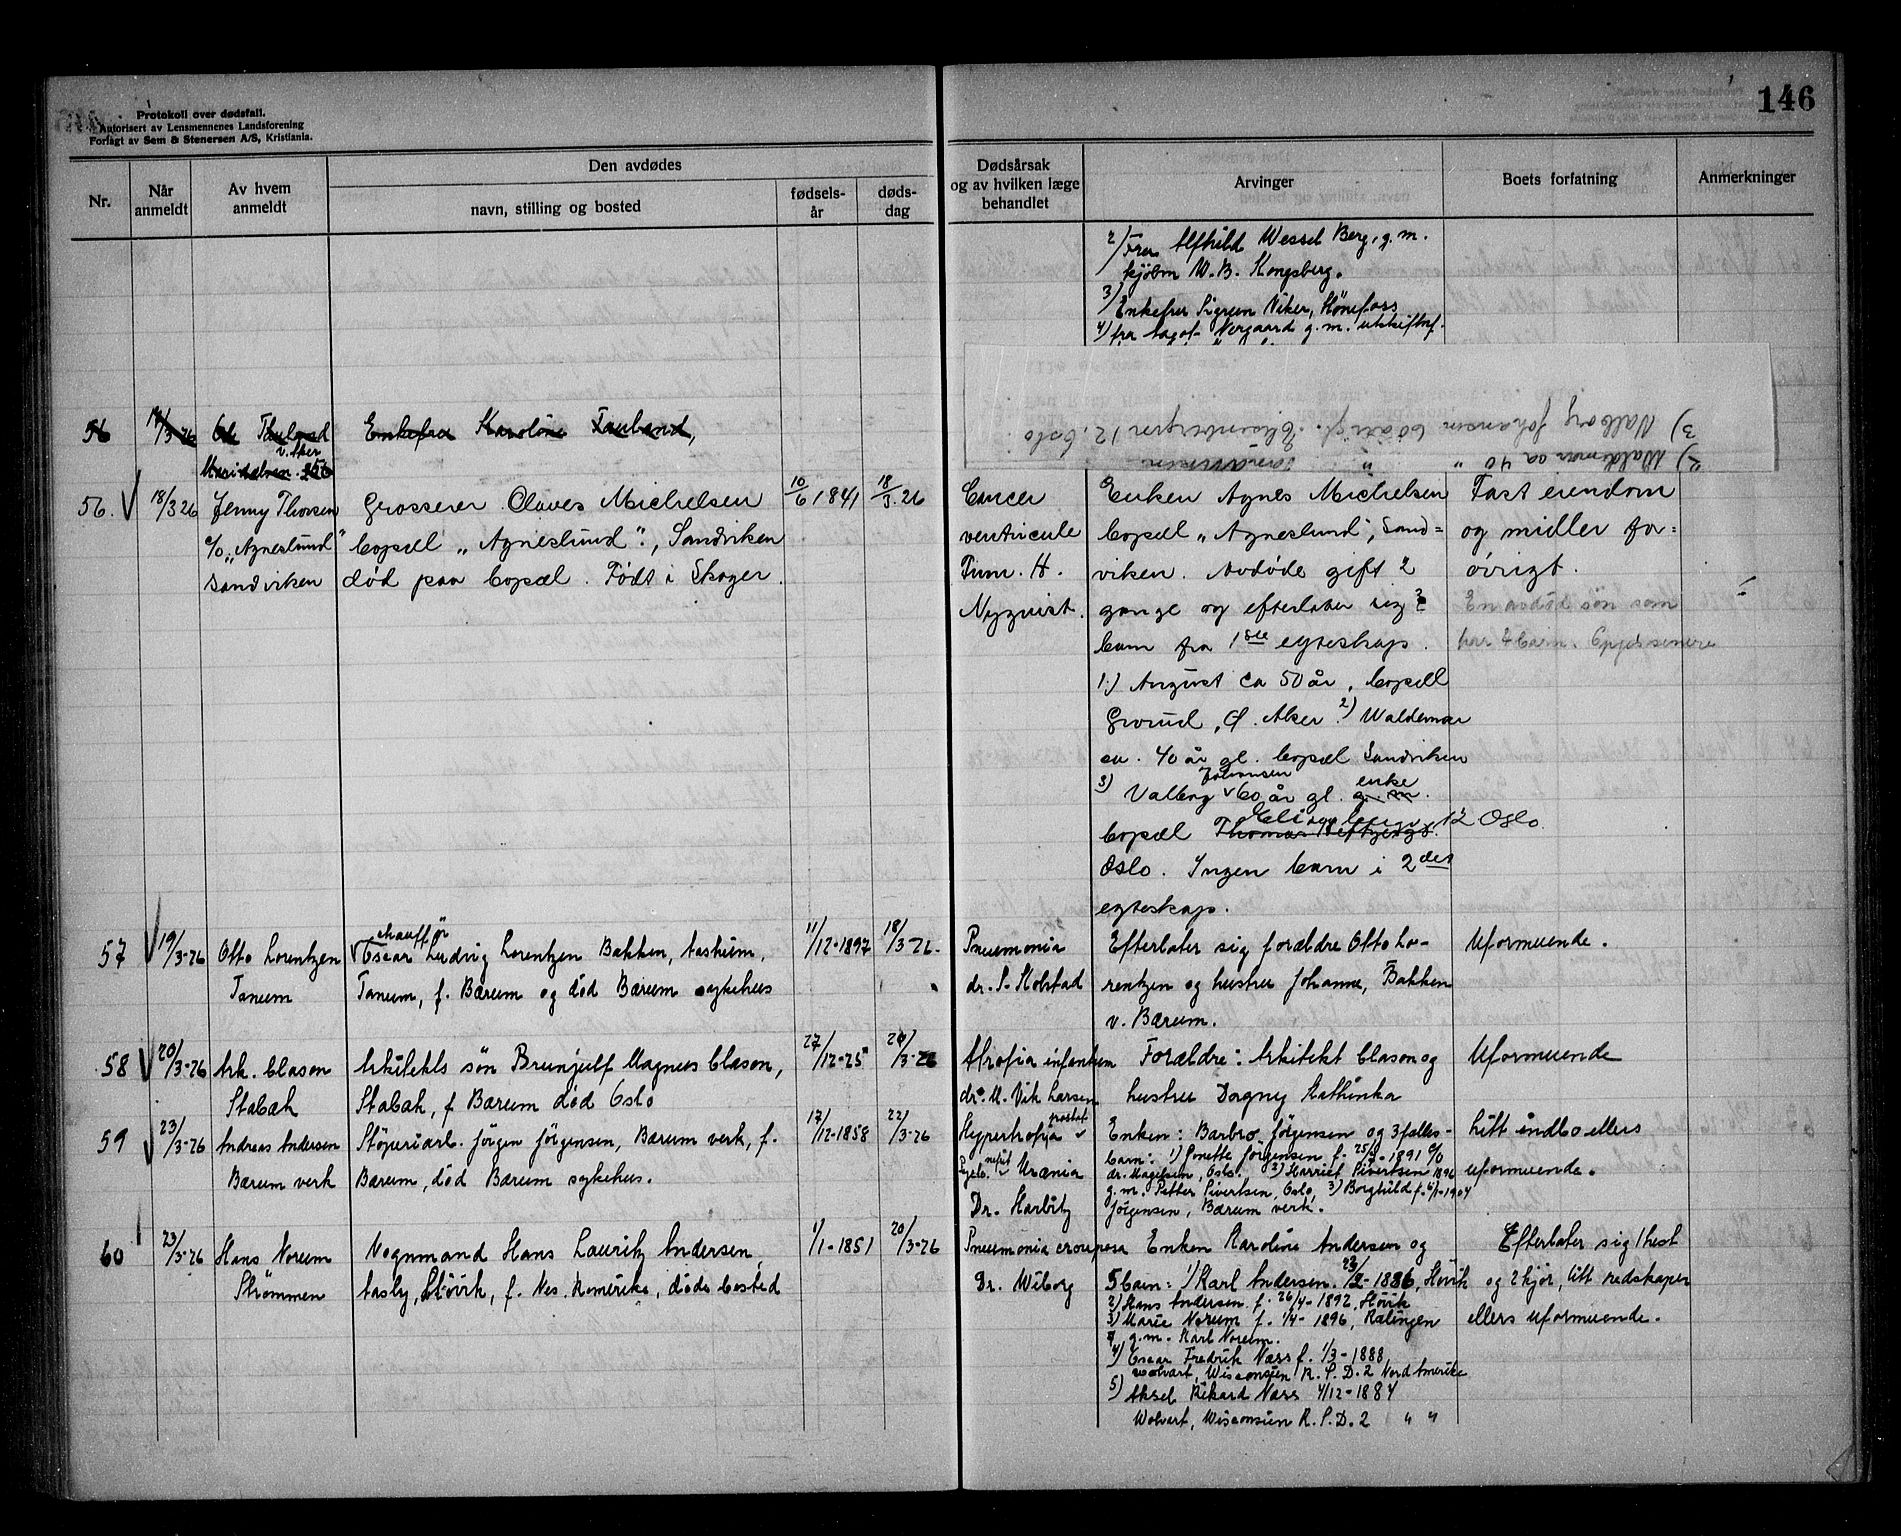 Protokoll over dødsfall.
Autorisert av Lensmennenes Landsforening
Forlagt av Sem & Stenersen A/S, Kristiania.
146
Nr.
Når anmeldt
Av hvem anmeldt
Den avdødes
navn, stilling og bosted
fødsels-år
døds-dag
Dødsårsak og av hvilken læge behandlet
Arvinger
Boets forfatning
Anmerkninger
2) Fru Alfhild Wessel Berg, g.m.
kjøbm W. B. Kongsberg.
3) Enkefru Sigrun Viker, Hönefoss
4) fru Nergaard g.m.
3) Valborg Johansen 60 år gl. 12. Oslo.
2) Waldemar ca 40 " " Sandviken
56 17/3-26 Ole Tauland Enkefru Karoline Tauland,
v. Aker
56. 18/3 26 Jenny Thorsen Grosserer Olaves Michelsen 10/6 1841 18/3.26 Cancer Enken Agnes Michelsen Fast eiendom
c/o "Agneslund" bopæl "Agneslund", Sandviken ventricule bopæl "Agneslund", Sand= og midler for=
Sandviken død paa bopæl. Født i Skoger. Fum. H. viken. Avdøde gift 2 øvrigt.
Nyquist. gange og efterlater sig 3 En avdød søn som
barn fra 1ste egteskap. har 4 barn. Opgis senere
1.) August ca 50 år, bopæl
Grorud, Ø. Aker. 2) Waldemar
ca. 40 år gl. bopæl Sandviken
Johansen enke
3) Valborg 60 år gl. g. m.
bopæl 12 Oslo
Oslo. Ingen barn i 2det
egteskap.
chauffør
57 19/3-26 Otto Lorentzen Oscar Ludvig Lorentzen Bakken, Aasheim, 11/12-1897 18/3-26. Pneumonia Efterlater sig forældre Otto Lo- Uformuende.
Tanum Tanum, f. Bærum og død Bærum sykehus dr. S. Kolstad rentzen og hustru Johanne, Bakken
v. Bærum.
58 20/3-26 Ark. Clason Arkitekts søn Brunjulf Magnus Clason, 27/12-25 20/3-26 Atrofia infantum Forældre: Arkitekt Clason og Uformuende
Stabæk Stabæk, f Bærum død Oslo dr. M. Vik Larsen hustru Dagny Kathinka
59 23/3-26 Andreas Andersen Støperiarb. Jörgen Jörgensen, Bærum verk, f. 17/12-1858 22/3-26 Hypertrofia prostat Enken: Barbro Jörgensen og 3 fælles- Litt indbo ellers
barn: 1) Jonette Jörgensen f. 25/2-1891 c/o
Bærum verk Bærum, død Bærum sykehus. Uræmia dr. Magelsen, Oslo. 2) Harriet Sivertsen 1896 uformuende.
g.m. Petter Sivertsen, Oslo, 3) Borghild f. 6/1-1904
Dr. Harbitz Jörgensen, Bærum verk.
60 23/3-26 Hans Noreum Vognmand Hans Lauritz Andersen, 1/1-1851 20/3-26 Pneumonia crouposa Enken Karoline Andersen og Efterlater sig 1 hest
Strömmen Aasly, Hövik, f. Nes. Romerike, döde bosted Dr. Wiborg 5 barn: 1) Karl Andersen 23/2-1886, Hövik og 2 kjør, litt redskaper
2) Hans Andersen f. 26/4-1892, Hövik
3) Marie Norum f. 1/4-1896, Rælingen ellers uformuende.
g.m. Karl Noreum.
4) Oscar Fredrik Næss f. 1/3-1888
Wolvart, Wisconsien R.F.D.2 Nord Amerika
5) Aksel Rikard Næss 4/12-1884
Wolvart, Wisconsien R.F.D.2 " "